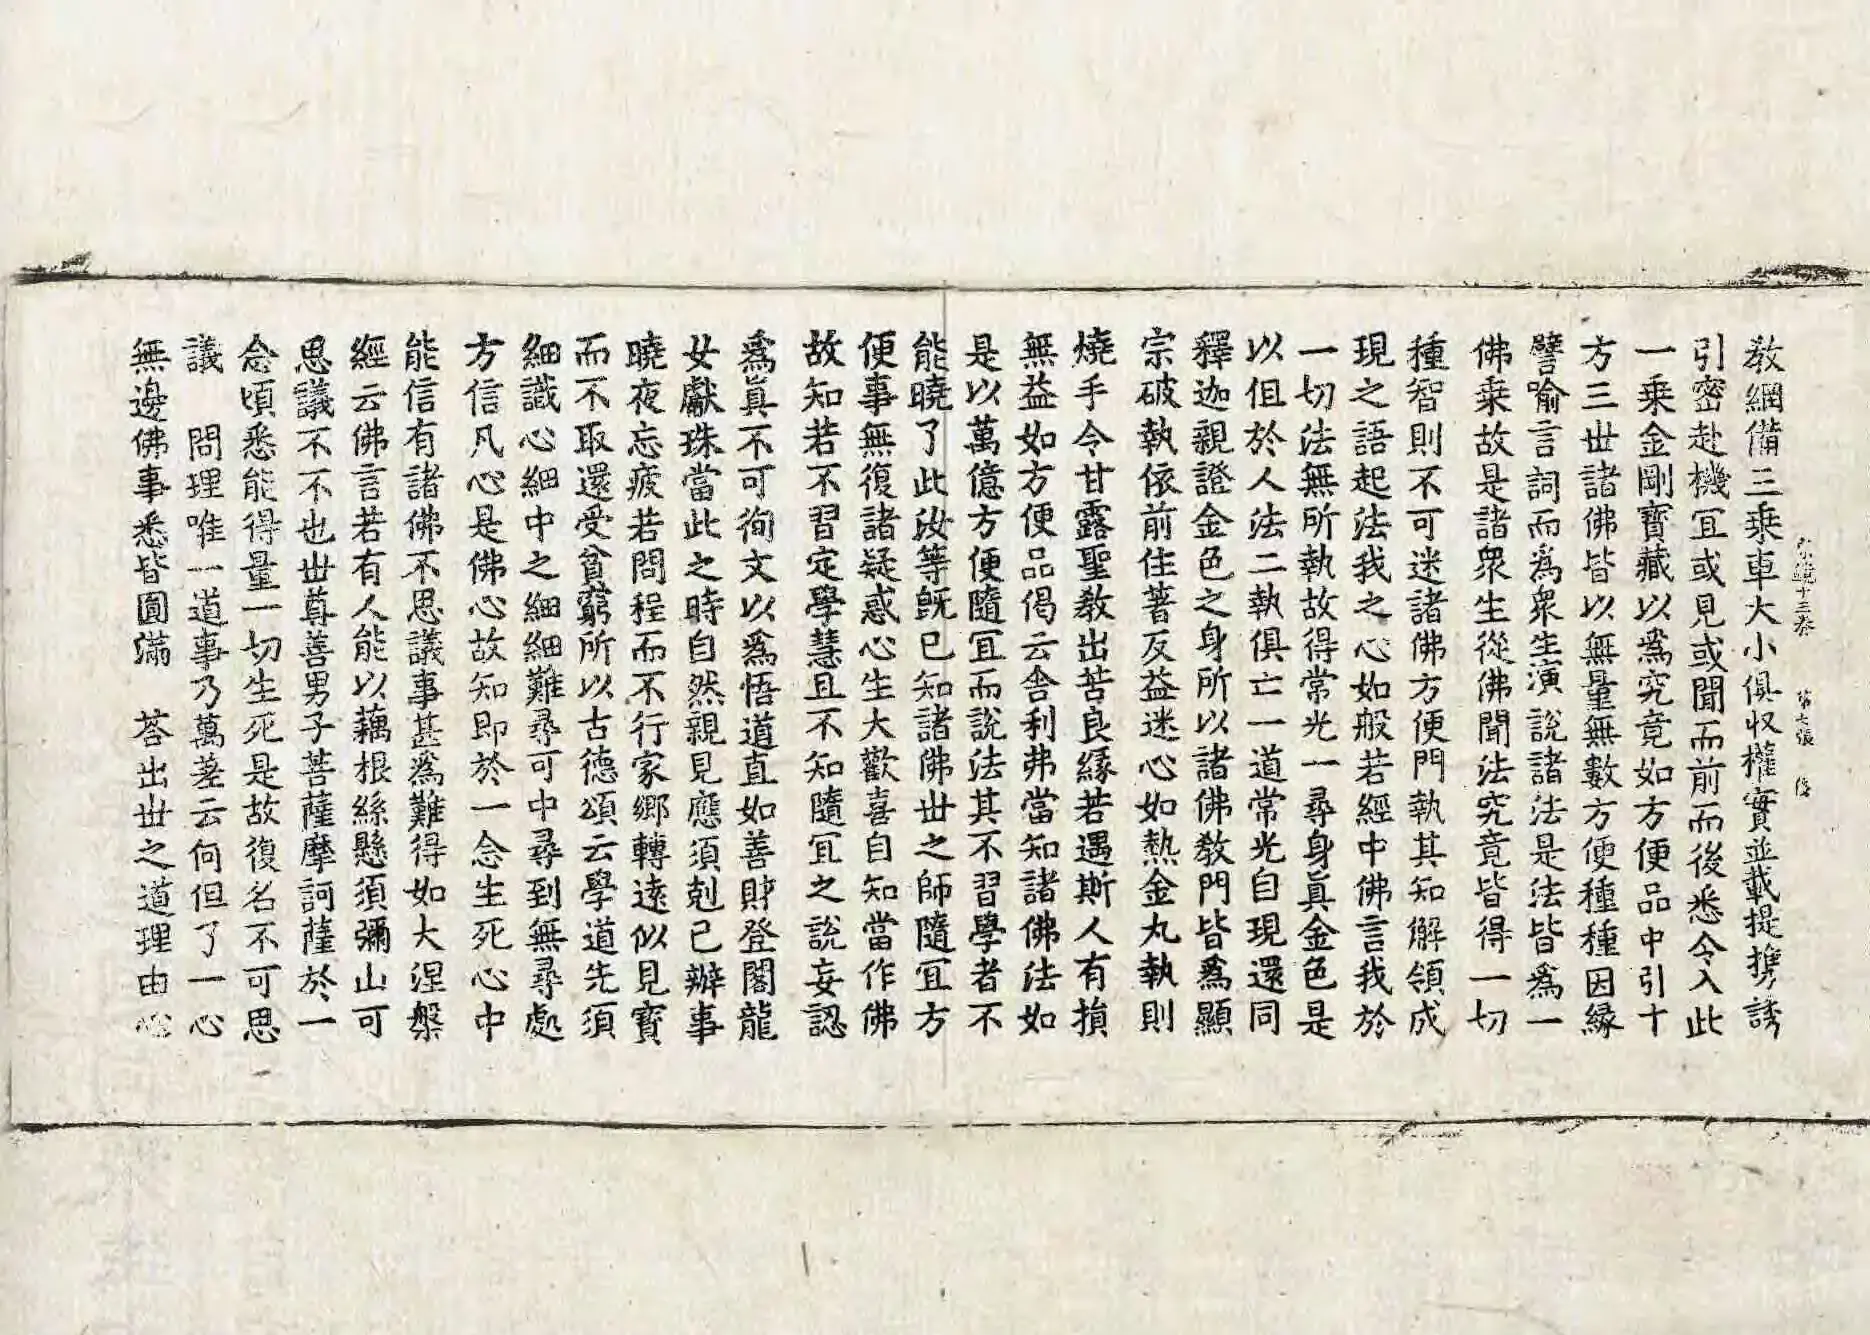 宗鏡十三卷　第七張　俊
教網備三乗車大小俱収權實並載提㩗誘
引密赴機冝或見或聞而前而後悉令入此
一乗金剛寶藏以爲究竟如方便品中引十
方三丗諸佛皆以無量無數方便種種因縁
譬喻言詞而爲衆生演說諸法是法皆爲一
佛乗故是諸衆生從佛聞法究竟皆得一切
種智則不可迷諸佛方便門執其知解領成
現之語起法我之心如般若經中佛言我於
一切法無所執故得常光一尋身真金色是
以但於人法二執俱亡一道常光自現還同
釋迦親證金色之身所以諸佛教門皆爲顯
宗破執依前住著反益迷心如熱金丸執則
燒手今甘露聖教出苦良縁若遇斯人有損
無益如方便品偈云舎利弗當知諸佛法如
是以萬億方便隨冝而說法其不習學者不
能曉了此汝等旣已知諸佛丗之師隨冝方
便事無復諸疑惑心生大歡喜自知當作佛
故知若不習定學慧且不知隨冝之說妄認
爲眞不可徇文以爲悟道直如善財登閣龍
女獻珠當此之時自然親見應須剋己辦事
曉夜忘疲若問程而不行家郷轉遠似見寶
而不取還受貧窮所以古德頌云學道先須
細識心細中之細細難尋可中尋到無尋處
方信凡心是佛心故知即於一念生死心中
能信有諸佛不思議事甚爲難得如大涅槃
經云佛言若有人能以藕根絲懸須彌山可
思議不不也丗尊善男子菩薩摩訶薩於一
念頃悉能得量一切生死是故復名不可思
議　問理唯一道事乃萬差云何但了一心
無邊佛事悉皆圓滿　荅出丗之道理由心